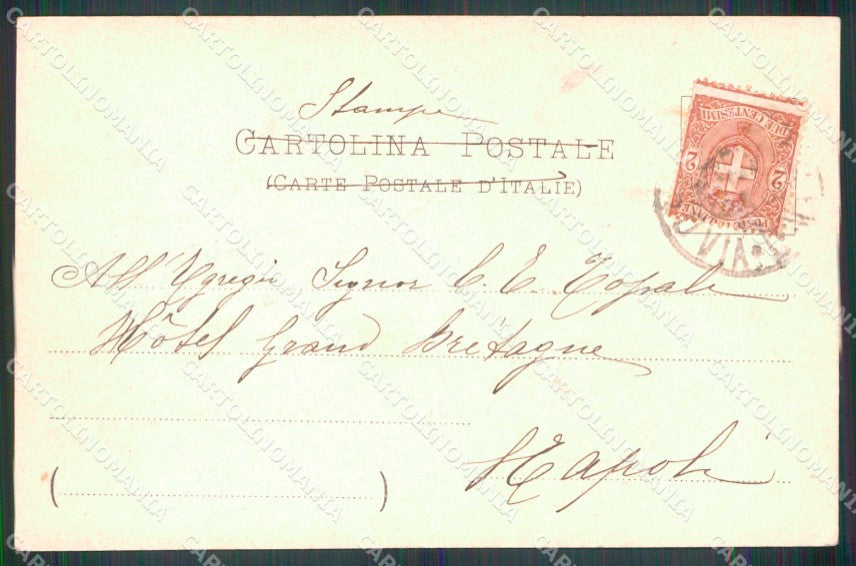 Stampe
CARTOLINA POSTALE
(CARTE POSTALE D'ITALIE)
DUE CENTESIMI
2 2
All'Ygregio Signor C. E. Topali
Hôtel Grand Bretagne
Napoli
CARTOLINOMANIA